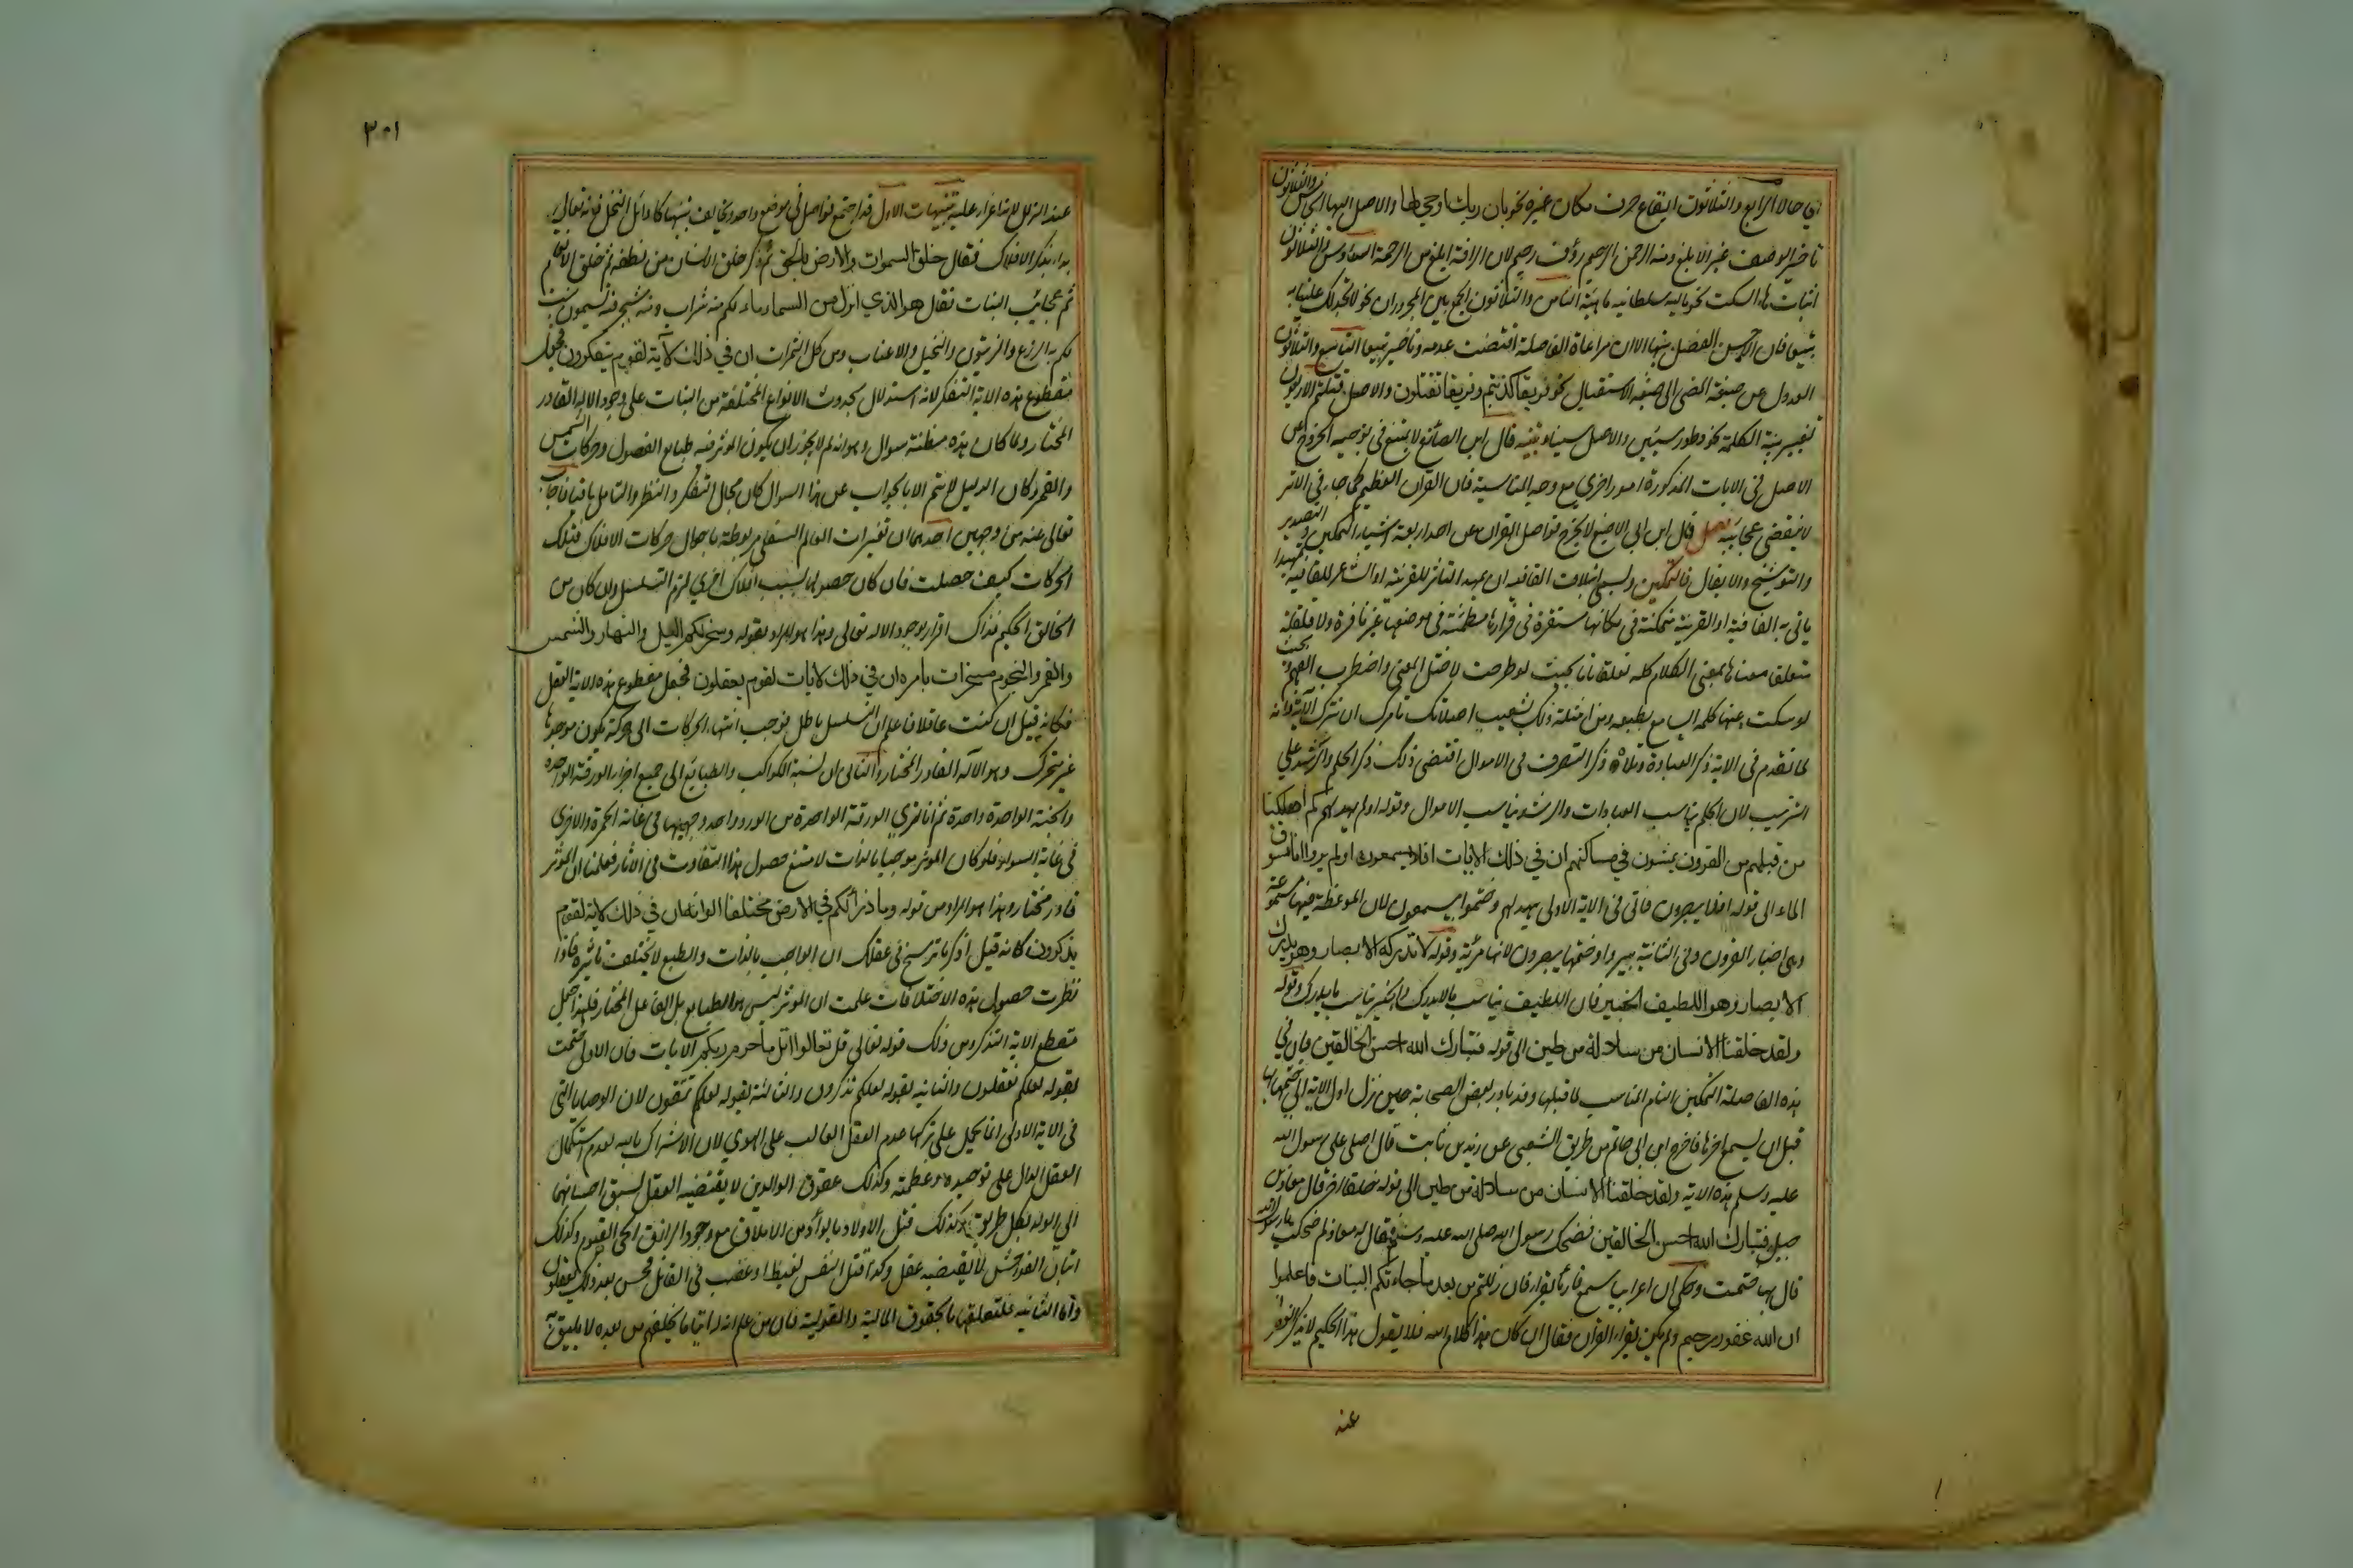 اي حالا الرابع والثلاثون ايقاع حرف مكان غيره نحو بان ربك اوحى لها والاصل اليها الخامس والثلاثون
تاخير الوصف غير الابلغ ومنه الرحمن الرحيم رؤف رحيم لان الرافة ابلغ من الرحمة السادس والثلاثون
اثبات هاء السكت نحو ماليه سلطانيه ماهيه الثامن والثلاثون الجمع بين المجرورات نحو لا تجد لك علينا به
تبيعا فان الاحسن الفصل بينها الا ان مراعاة الفاصلة اقتضت عدمه وتاخير تبيعا التاسع والثلاثون
العدول عن صيغة المضي الى صيغة الاستقبال نحو فريقا كذبتم وفريقا تقتلون والاصل قتلتم الاربعون
تغيير بنية الكلمة نحو وطور سينين والاصل سينا تنبيه قال ابن الصائغ لا يمتنع في توجيه الخروج عن
الاصل في الايات المذكورة امور اخرى مع وجه المناسبة فان القران العظيم كما جاء في الاثر
لا تنقضي عجائبه فصل قال ابن ابي الاصبع لا تخرج فواصل القران عن احد اربعة اشياء التمكين والتصدير
والتوشيح والايغال فالتمكين ويسمى ائتلاف القافيه ان يمهد الناثر للقرينة او الشاعر للقافية تمهيدا
ياتي به القافية او القرينة متمكنة في مكانها مستقرة في قرارها مطمئنة في موضعها غير نافرة ولا قلقة
متعلقا معناها بمعنى الكلام كله تعلقا تاما بحيث لو طرحت لاختل المعنى واضطرب الفهم وبحيث
لو سكت عنها كمله السامع بطبعه ومن امثلة ذلك يشعيب اصلاتك تامرك ان نترك الاية فانه
لما تقدم في الاية ذكر العبادة وتلاه ذكر التصرف في الاموال اقتضى ذلك ذكر الحلم والرشد على
الترتيب لان الحلم يناسب العبادات والرشد يناسب الاموال وقوله اولم يهد لهم كم اهلكنا
من قبلهم من القرون يمشون في مساكنهم ان في ذلك لايات افلا يسمعون اولم يروا انا نسوق
الماء الى قوله افلا يبصرون فاتى في الاية الاولى بيهد لهم وختمها بيسمعون لان الموعظة فيها مسموعة
وهي اخبار القرون وفي الثانية بيروا وختمها بيبصرون لانها مرئية وقوله لا تدركه الابصار وهو يدرك
الابصار وهو اللطيف الخبير فان اللطيف يناسب ما لا يدرك والخبير يناسب ما يدرك وقوله
ولقد خلقنا الانسان من سلالة من طين الى قوله فتبارك الله احسن الخالقين فان في
هذه الفاصلة التمكين التام المناسب لما قبلها وقد بادر بعض الصحابة حين نزل اول الاية الى ختمها بها
قبل ان يسمع اخرها فاخرج ابن ابي حاتم من طريق الشعبي عن زيد بن ثابت قال املى على رسول الله
عليه وسلم هذه الاية ولقد خلقنا الانسان من سلالة من طين الى قوله خلقا اخر قال معاذ بن
جبل فتبارك الله احسن الخالقين فضحك رسول الله صلى الله عليه وسلم فقال له معاذ لم ضحكت يا رسول الله
قال بها ختمت وحكي ان اعرابيا سمع قارئا يقرا فان زللتم من بعد ما جاءتكم البينات فاعلموا
ان الله غفور رحيم ولم يكن يقرا القران فقال ان كان هذا كلام الله فلا يقول هذا الحكيم لا يذكر الغفران
عند
٣٠١
عند الزلل لانه اغراء عليه تنبيهات الاول قد اجتمع فواصل في موضع واحد ويخالف بينها كاوائل النحل فانه تعالى
بدا بذكر الافلاك فقال خلق السموات والارض بالحق ثم ذكر خلق الانسان من نطفة ثم خلق الانعام
ثم عجائب النبات فقال هو الذي انزل من السماء ماء لكم منه شراب ومنه شجر فيه تسيمون ينبت
لكم به الزرع والزيتون والنخيل والاعناب ومن كل الثمرات ان في ذلك لاية لقوم يتفكرون فجعل
مقطع هذه الاية التفكر لانه استدلال بحدوث الانواع المختلفة من النبات على وجود الاله القادر
المختار ولما كان هذه مظنة سوال وهو انه لم لا يجوز ان يكون المؤثر فيه طبايع الفصول وحركات الشمس
والقمر وكان الدليل لا يتم الا بالجواب عن هذا السوال كان مجال التفكر والنظر والتامل باقيا فاجاب
تعالى عنه من وجهين احدهما ان تغيرات العالم السفلي مربوطة باحوال حركات الافلاك فتلك
الحركات كيف حصلت فان كان حصولها بسبب افلاك اخرى لزم التسلسل وان كان من
الخالق الحكيم فذاك اقرار بوجود الاله تعالى وهذا هو المراد بقوله وسخر لكم الليل والنهار والشمس
والقمر والنجوم مسخرات بامره ان في ذلك لايات لقوم يعقلون فجعل مقطع هذه الاية العقل
فكانه قيل ان كنت عاقلا فاعلم ان التسلسل باطل فوجب انتهاء الحركات الى حركة يكون موجدها
غير متحرك وهو الاله القادر المختار والثاني ان نسبة الكواكب والطبايع الى جميع اجزاء الورقة الواحدة
والحبة الواحدة واحدة ثم انا نرى الورقة الواحدة من الورد واحد وجهيها في غاية الحمرة والاخرى
في غاية السواد فلو كان المؤثر موجبا بالذات لامتنع حصول هذا التفاوت في الاثار فعلمنا ان المؤثر
قادر مختار وهذا هو المراد من قوله وما ذرا لكم في الارض مختلفا الوانه ان في ذلك لاية لقوم
يذكرون كانه قيل اذكر ما ترسخ في عقلك ان الواجب بالذات والطبع لا يختلف تاثيره فاذا
نظرت حصول هذه الاختلافات علمت ان المؤثر ليس هو الطبايع بل الفاعل المختار فلهذا جعل
مقطع الاية التذكر ومن ذلك قوله تعالى قل تعالوا اتل ما حرم ربكم الايات فان الاولى ختمت
بقوله لعلكم تعقلون والثانية بقوله لعلكم تذكرون والثالثة بقوله لعلكم تتقون لان الوصايا التي
في الاية الاولى انما يحمل على تركها عدم العقل الغالب على الهوى لان الاشراك بالله لعدم استكمال
العقل الدال على توحيده وعظمته وكذلك عقوق الوالدين لا يقتضيه العقل لسبق احسانهما
الى الولد بكل طريق وكذلك قتل الاولاد بالوأد من الاملاق مع وجود الرازق الحي القيوم وكذلك
اتيان الفواحش لا يقتضيه عقل وكذا قتل النفس لغيظ او غضب في القاتل فحسن بعد ذلك يعقلون
واما الثانية فلتعلقها بالحقوق المالية والقولية فان من علم ان له ايتاما يخلفهم من بعده لا يليق به